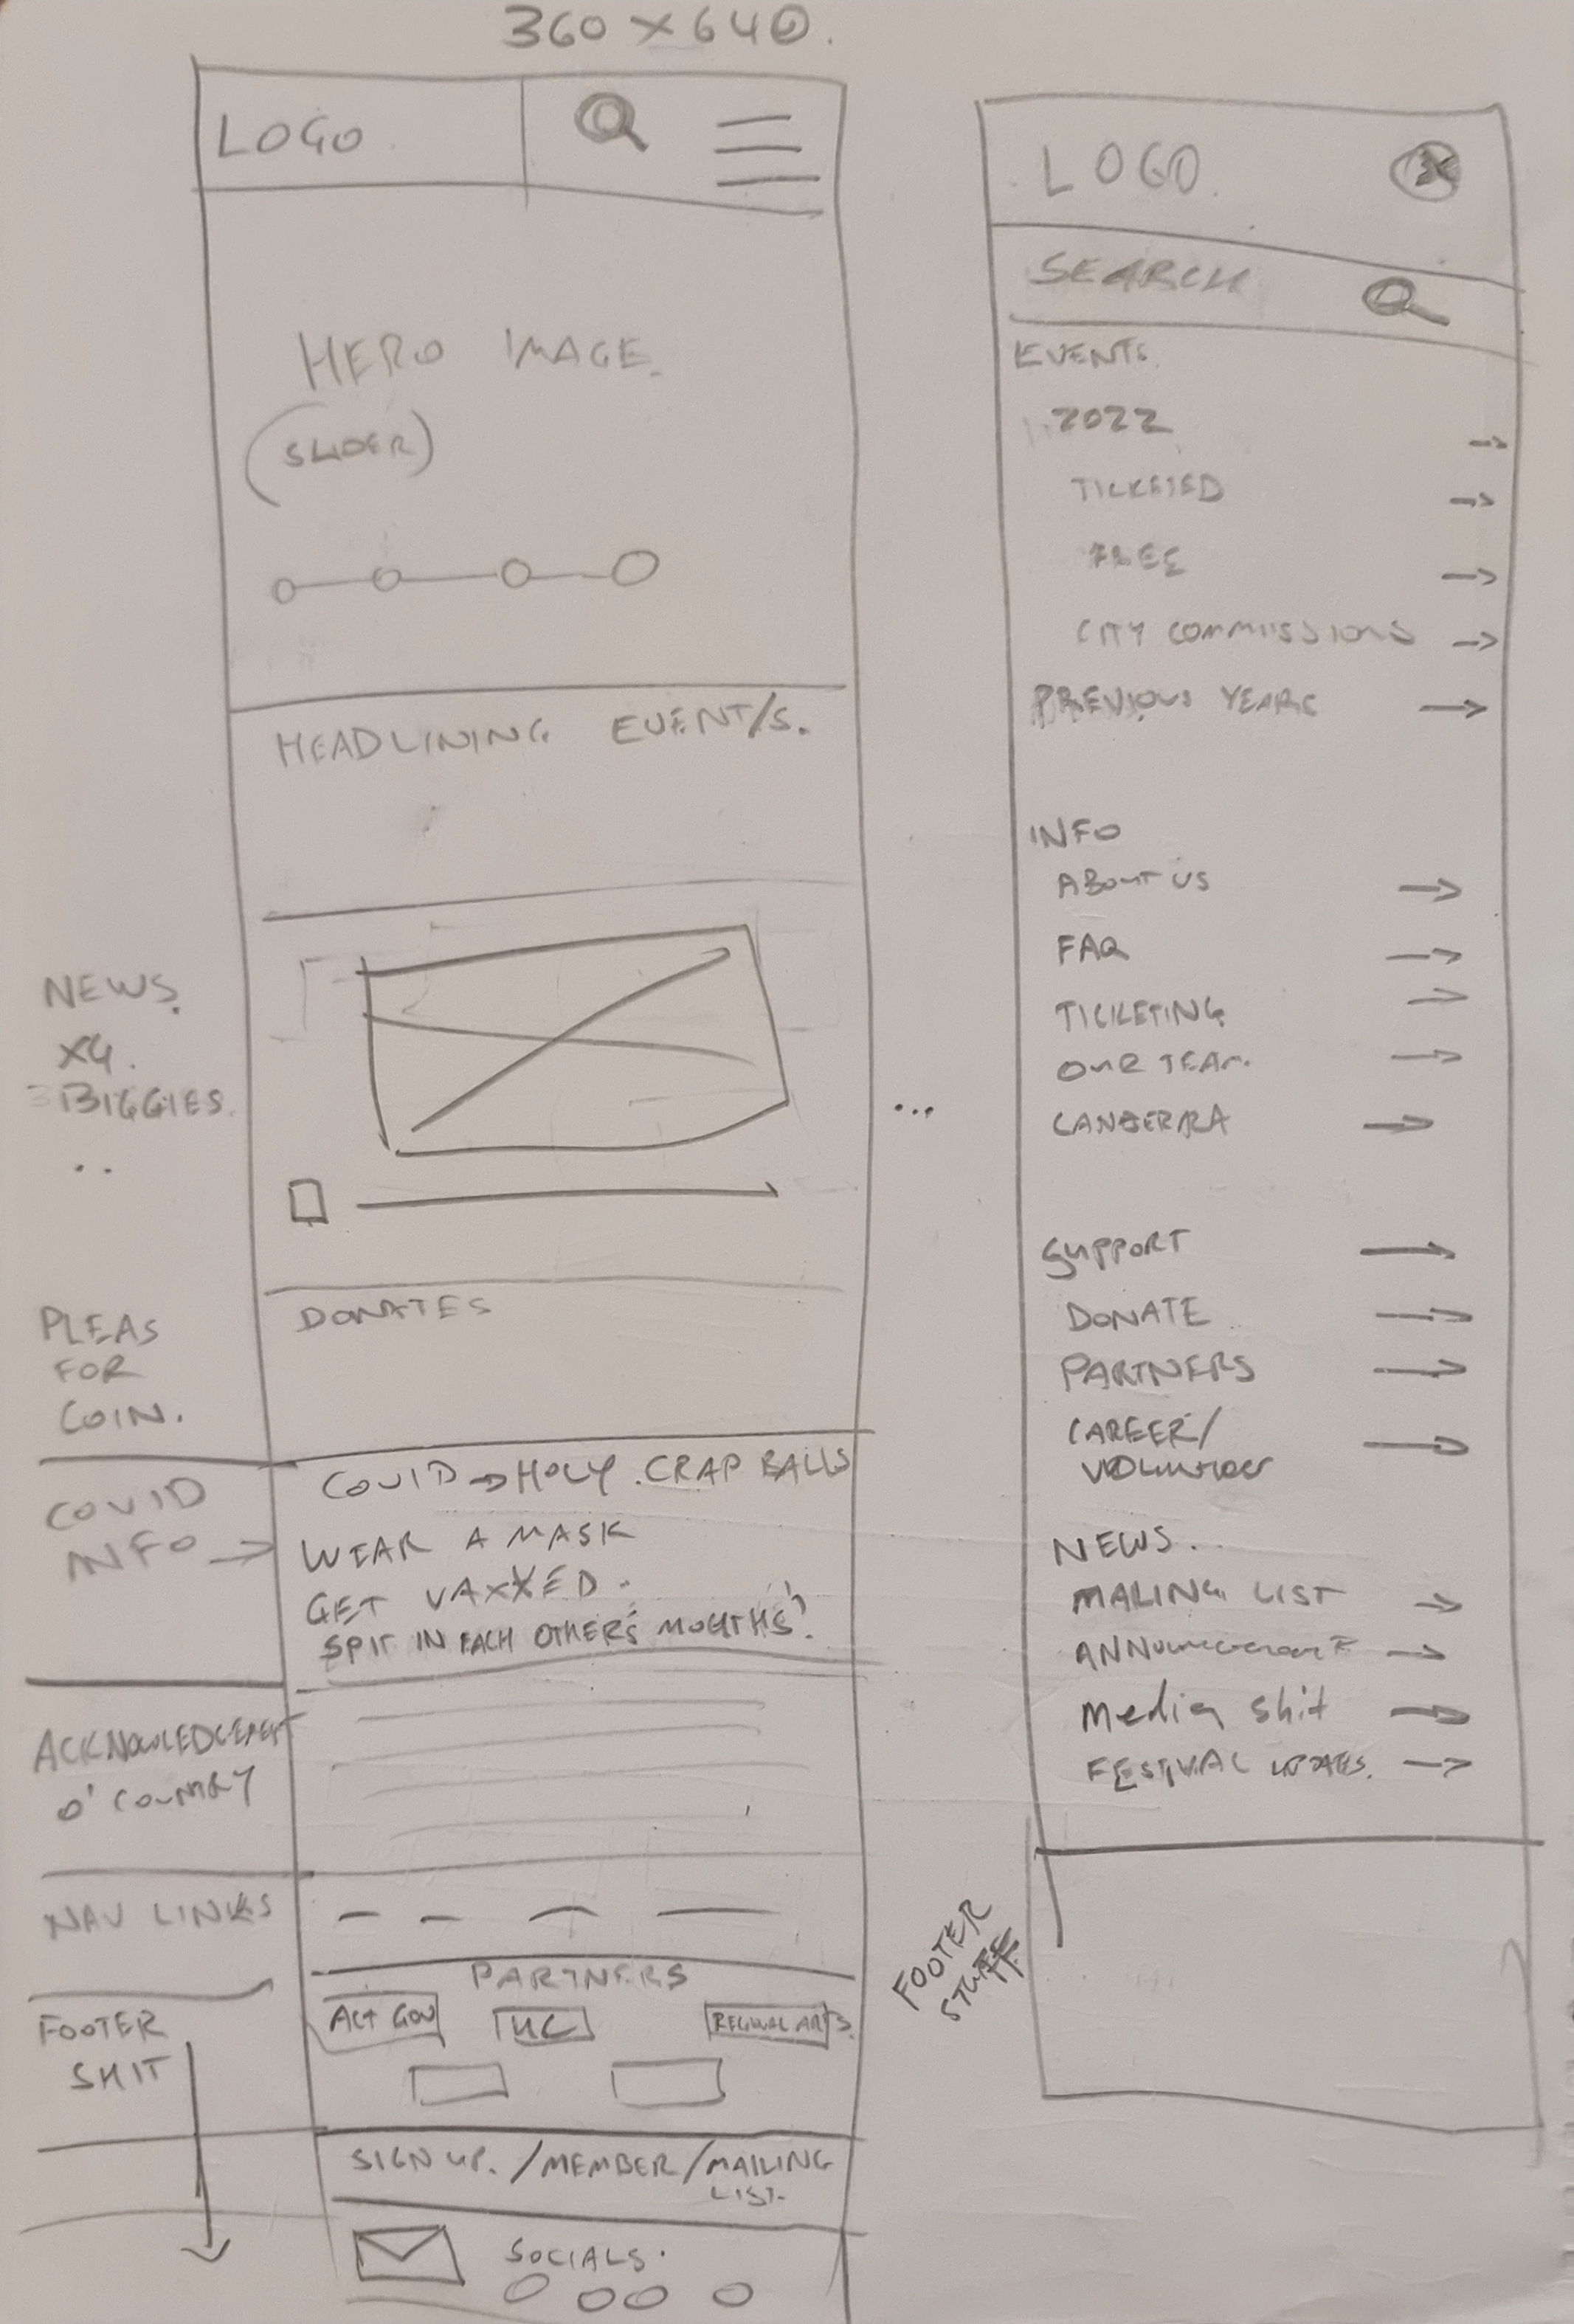 360 x 640.
LOGO.
HERO IMAGE.
(SLIDER)
HEADLINING EVENT/S.
NEWS.
X4.
BIGGIES.
..
...
PLEAS
FOR
COIN.
DONATES
COVID
INFO →
COVID → HOLY. CRAP BALLS
WEAR A MASK
GET VAXXED.
SPIT IN EACH OTHER'S MOUTHS!
ACKNOWLEDGEMENT
O' COUNTRY
NAV LINKS
FOOTER
SHIT
PARTNERS
ACT GOV
UC
REGIONAL ARTS.
SIGN UP. / MEMBER / MAILING
LIST.
SOCIALS.
LOGO.
X
SEARCH
EVENTS.
2022 →
TICKETED →
FREE →
CITY COMMISSIONS →
PREVIOUS YEARS →
INFO
ABOUT US →
FAQ →
TICKETING →
OUR TEAM. →
CANBERRA →
SUPPORT →
DONATE →
PARTNERS →
CAREER/ →
VOLUNTEER
NEWS..
MAILING LIST →
ANNOUNCEMENTS →
Media shit →
FESTIVAL UPDATES. →
FOOTER
STUFF